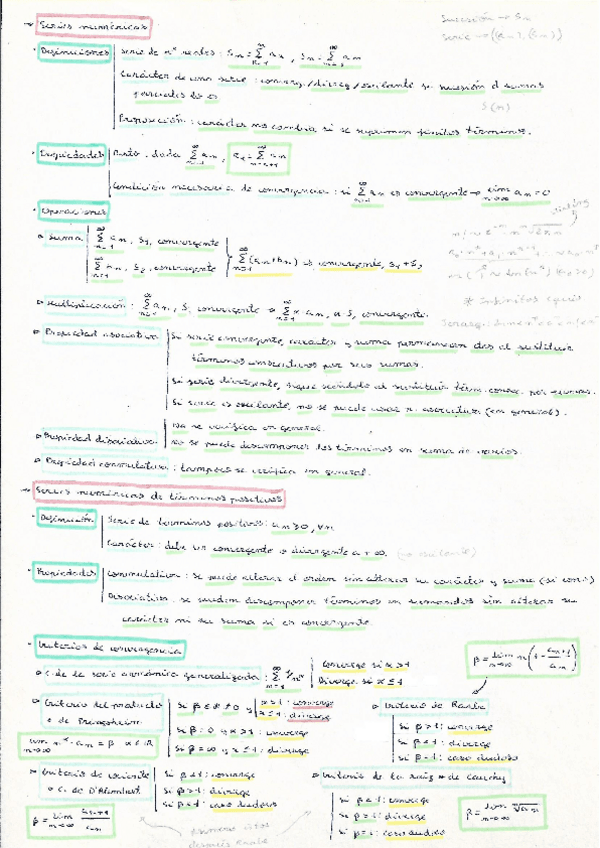 → Series numéricas
Sucesión → Sn
Serie → ({an}, {Sn})
· Definiciones
Serie de nº reales: Sn = ∑ an, Sn = ∑ an
Carácter de una serie: converg./diverg./oscilante si sucesión d sumas
parciales lo es
S(n)
Proposición: carácter no cambia si se suprimen finitos términos.
· Propiedades
Resto, dada ∑ an,
Condición necesaria de convergencia: si ∑ an es convergente → lim an = 0
n→∞
· Operaciones
Stirling
▫ Suma
∑ an, S1, convergente
∑ bn, S2, convergente
∑ (an+bn) es convergente, S1+S2
* Infinitos equiv
▫ Multiplicación: ∑ an, S, convergente → ∑ α an, α S, convergente.
▫ Propiedad asociativa
Si serie convergente, carácter y suma permanecen al sustituir
términos consecutivos por sus sumas.
Si serie divergente, sigue siéndolo al sustituir térm. consec. por sumas.
Si serie es oscilante, no se puede usar p. asociativa (en general).
▫ Propiedad disociativa
No se verifica en general.
No se puede descomponer los términos en suma de varios.
▫ Propiedad conmutativa: tampoco se verifica en general.
→ Series numéricas de términos positivos
· Definición
Serie de términos positivos: an ≥ 0, ∀n
Carácter: debe ser convergente o divergente a +∞. (no oscilante)
· Propiedades
Conmutativa: se puede alterar el orden sin alterar su carácter y suma (si conv.)
Disociativa: se pueden descomponer términos en sumandos sin alterar su
carácter ni su suma si es convergente.
· Criterios de convergencia
β = lim n(1 - an+1/an)
n→∞
▫ C. de la serie armónica generalizada: ∑ 1/n^α
Converge si α > 1
Diverge si α ≤ 1
▫ Criterio del producto
o de Pringsheim
lim n^α · an = β α ∈ ℝ
n→∞
Si β ≠ ∞ ≠ 0 y
α > 1: converge
α ≤ 1: diverge
Si β = 0 y α > 1: converge
Si β = ∞ y α ≤ 1: diverge
▫ Criterio de Raabe
si β > 1: converge
si β < 1: diverge
si β = 1: caso dudoso
▫ Criterio de cociente
o C. de D'Alembert
β = lim an+1/an
n→∞
si β < 1: converge
si β > 1: diverge
si β = 1: caso dudoso
▫ Criterio de la raíz o de Cauchy
si β < 1: converge
si β > 1: diverge
si β = 1: caso dudoso
lim ⁿ√an
n→∞
primero
después Raabe